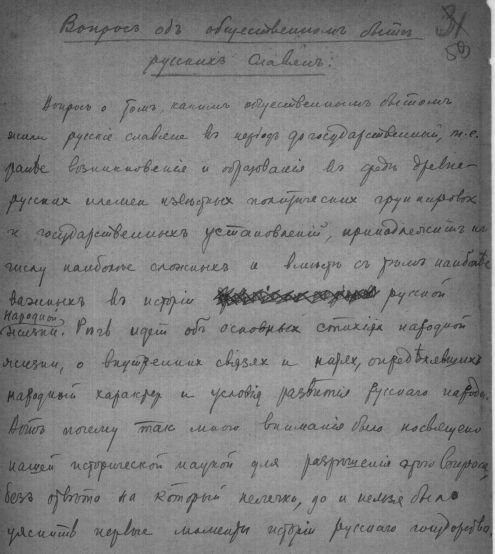 Вопросъ объ общественномъ бытѣ
русскихъ славянъ.
31
59
Вопросъ о томъ, какимъ общественнымъ бытомъ
жили русскіе славяне въ періодъ догосударственный, т.е.
ранѣе возникновенія и образованія въ средѣ древне-
русскихъ племен извѣстныхъ политическихъ группировок
и государственныхъ установленій, принадлежитъ къ
числу наиболѣе сложныхъ и вмѣстѣ съ тѣмъ наиболѣе
важныхъ въ исторіи русской
народной
жизни. Рѣчь идетъ объ основныхъ стихіях народной
жизни, о внутреннихъ связях и нарях, опредѣлявшихъ
народный характер и условія развитія русскаго народа.
Вотъ почему такъ много вниманія было посвящено
нашей исторической наукой для разрѣшенія этого вопроса,
безъ отвѣта на который нелегко, да и нельзя было
уяснить первые моменты исторіи русскаго государства